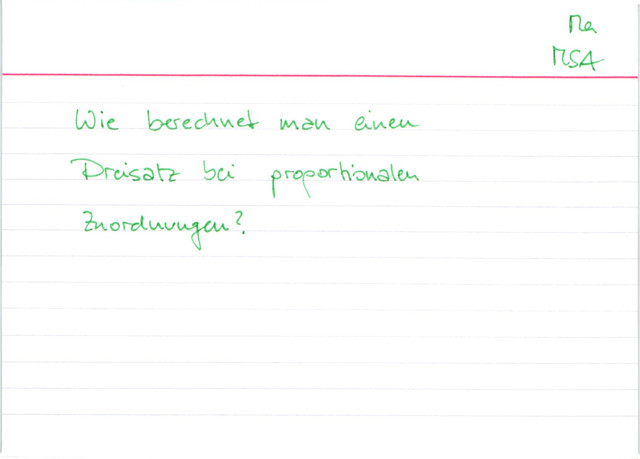 Ma
MSA
Wie berechnet man einen
Dreisatz bei proportionalen
Zuordnungen?